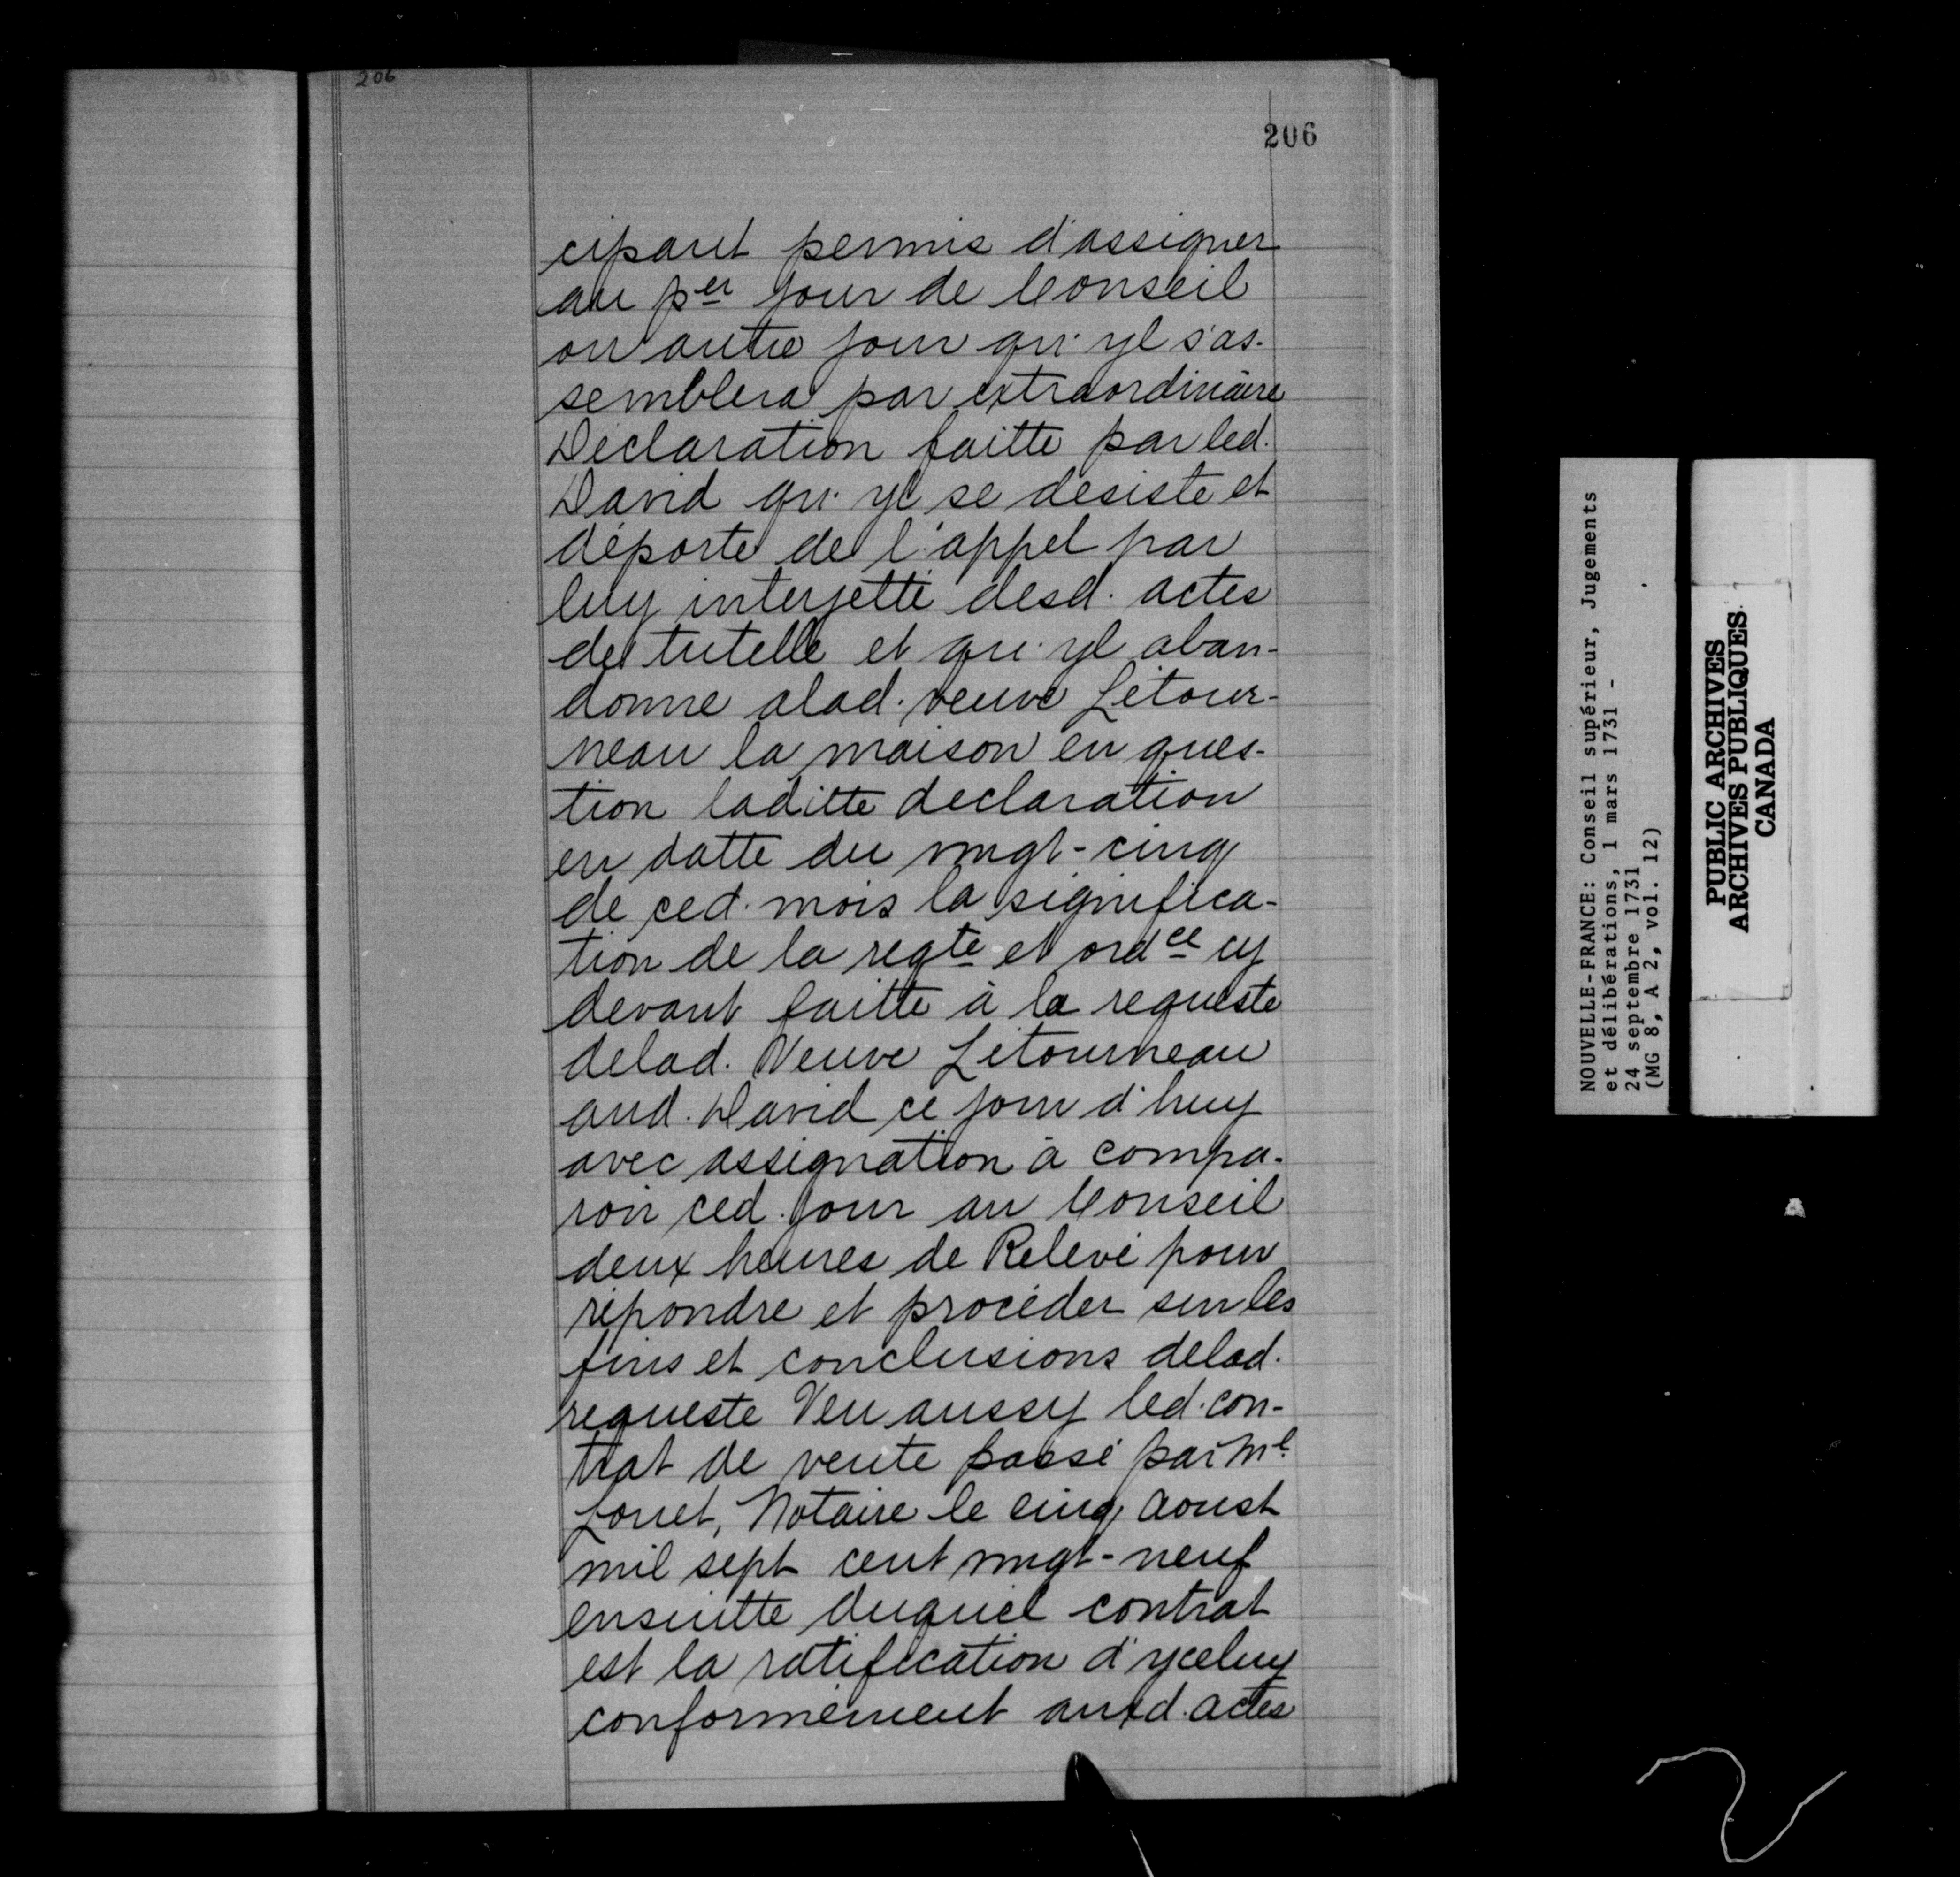 206
206
cipant permis d'assigner
au per jour de Conseil
ou autre jour qu'yl s'as-
semblera par extraordinaire
Déclaration faitte par led.
David qu'yl se desiste et
déporte de l'appel par
luy interjetté desd. actes
de tutelle et qu'yl aban-
donne alad. veuve Létour-
neau la maison en ques-
tion laditte declaration
en datte du vingt-cinq
de ced. mois la significa-
tion de la reqte et ordce cy
devant faitte à la requeste
delad. Veuve Létourneau
aud. David ce jour d'huy
avec assignation à compa-
roir ced. jour au Conseil
deux heures de Relevé pour
répondre et procéder sur les
fins et conclusions delad.
requeste Veu aussy led. con-
trat de vente passé par Me
Louet, Notaire le cinq Aoust
mil sept cent vingt-neuf
ensuitte duquel contrat
est la ratification d'yceluy
conformément auxd. actes
NOUVELLE-FRANCE: Conseil supérieur, Jugements
et délibérations, 1 mars 1731 -
24 septembre 1731
(MG 8, A 2, vol. 12)
PUBLIC ARCHIVES
ARCHIVES PUBLIQUES
CANADA